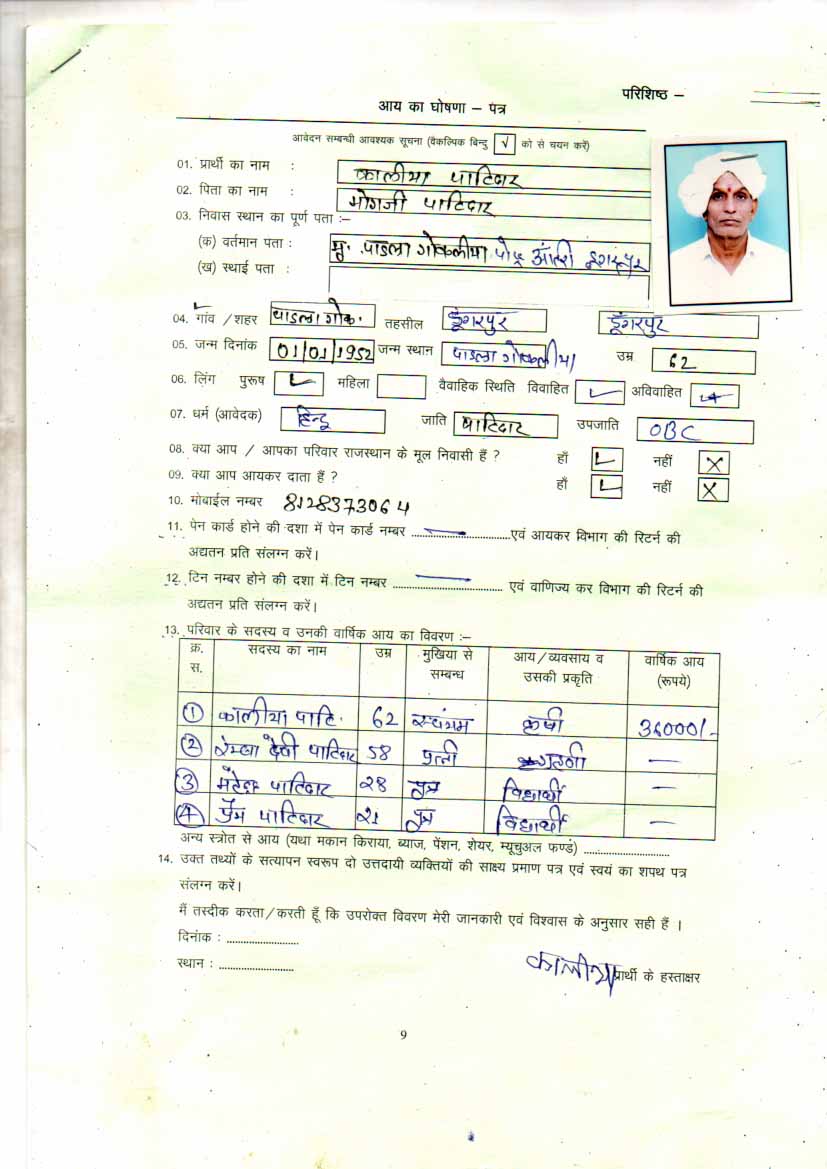 परिशिष्ठ –
आय का घोषणा – पत्र
आवेदन सम्बन्धी आवश्यक सूचना (वैकल्पिक बिन्दु √ को से चयन करें)
01. प्रार्थी का नाम : कालीया पाटिदार
02. पिता का नाम : मोगजी पाटिदार
03. निवास स्थान का पूर्ण पता :–
(क) वर्तमान पता : मु. पाडला गोकलीया पो. आंतरी डूंगरपुर
(ख) स्थाई पता :
04. गांव / शहर पाडला गोक. तहसील डूंगरपुर डूंगरपुर
05. जन्म दिनांक 01/01/1952 जन्म स्थान पाडला गोकलीया उम्र 62
06. लिंग पुरूष महिला वैवाहिक स्थिति विवाहित अविवाहित
07. धर्म (आवेदक) हिन्दू जाति पाटिदार उपजाति OBC
08. क्या आप / आपका परिवार राजस्थान के मूल निवासी हैं ? हाँ नहीं X
09. क्या आप आयकर दाता हैं ? हाँ नहीं X
10. मोबाईल नम्बर 8128373064
11. पेन कार्ड होने की दशा में पेन कार्ड नम्बर ........ — ........ एवं आयकर विभाग की रिटर्न की
अद्यतन प्रति संलग्न करें।
12. टिन नम्बर होने की दशा में टिन नम्बर ........ — ........ एवं वाणिज्य कर विभाग की रिटर्न की
अद्यतन प्रति संलग्न करें।
13. परिवार के सदस्य व उनकी वार्षिक आय का विवरण :–
क्र. स. सदस्य का नाम उम्र मुखिया से सम्बन्ध आय/व्यवसाय व उसकी प्रकृति वार्षिक आय (रूपये)
1 कालीया पाटि. 62 स्वंयम कृषी 36000/-
2 देवी पाटिदार 58 पत्नी —
3 पाटिदार 28 पुत्र विद्यार्थी —
4 प्रेम पाटिदार 21 पुत्र विद्यार्थी —
अन्य स्त्रोत से आय (यथा मकान किराया, ब्याज, पेंशन, शेयर, म्यूचुअल फण्ड) ........................
14. उक्त तथ्यों के सत्यापन स्वरूप दो उत्तदायी व्यक्तियों की साक्ष्य प्रमाण पत्र एवं स्वयं का शपथ पत्र
संलग्न करें।
मैं तस्दीक करता/करती हूँ कि उपरोक्त विवरण मेरी जानकारी एवं विश्वास के अनुसार सही हैं ।
दिनांक : ........................
स्थान : ........................
कालीया प्रार्थी के हस्ताक्षर
9